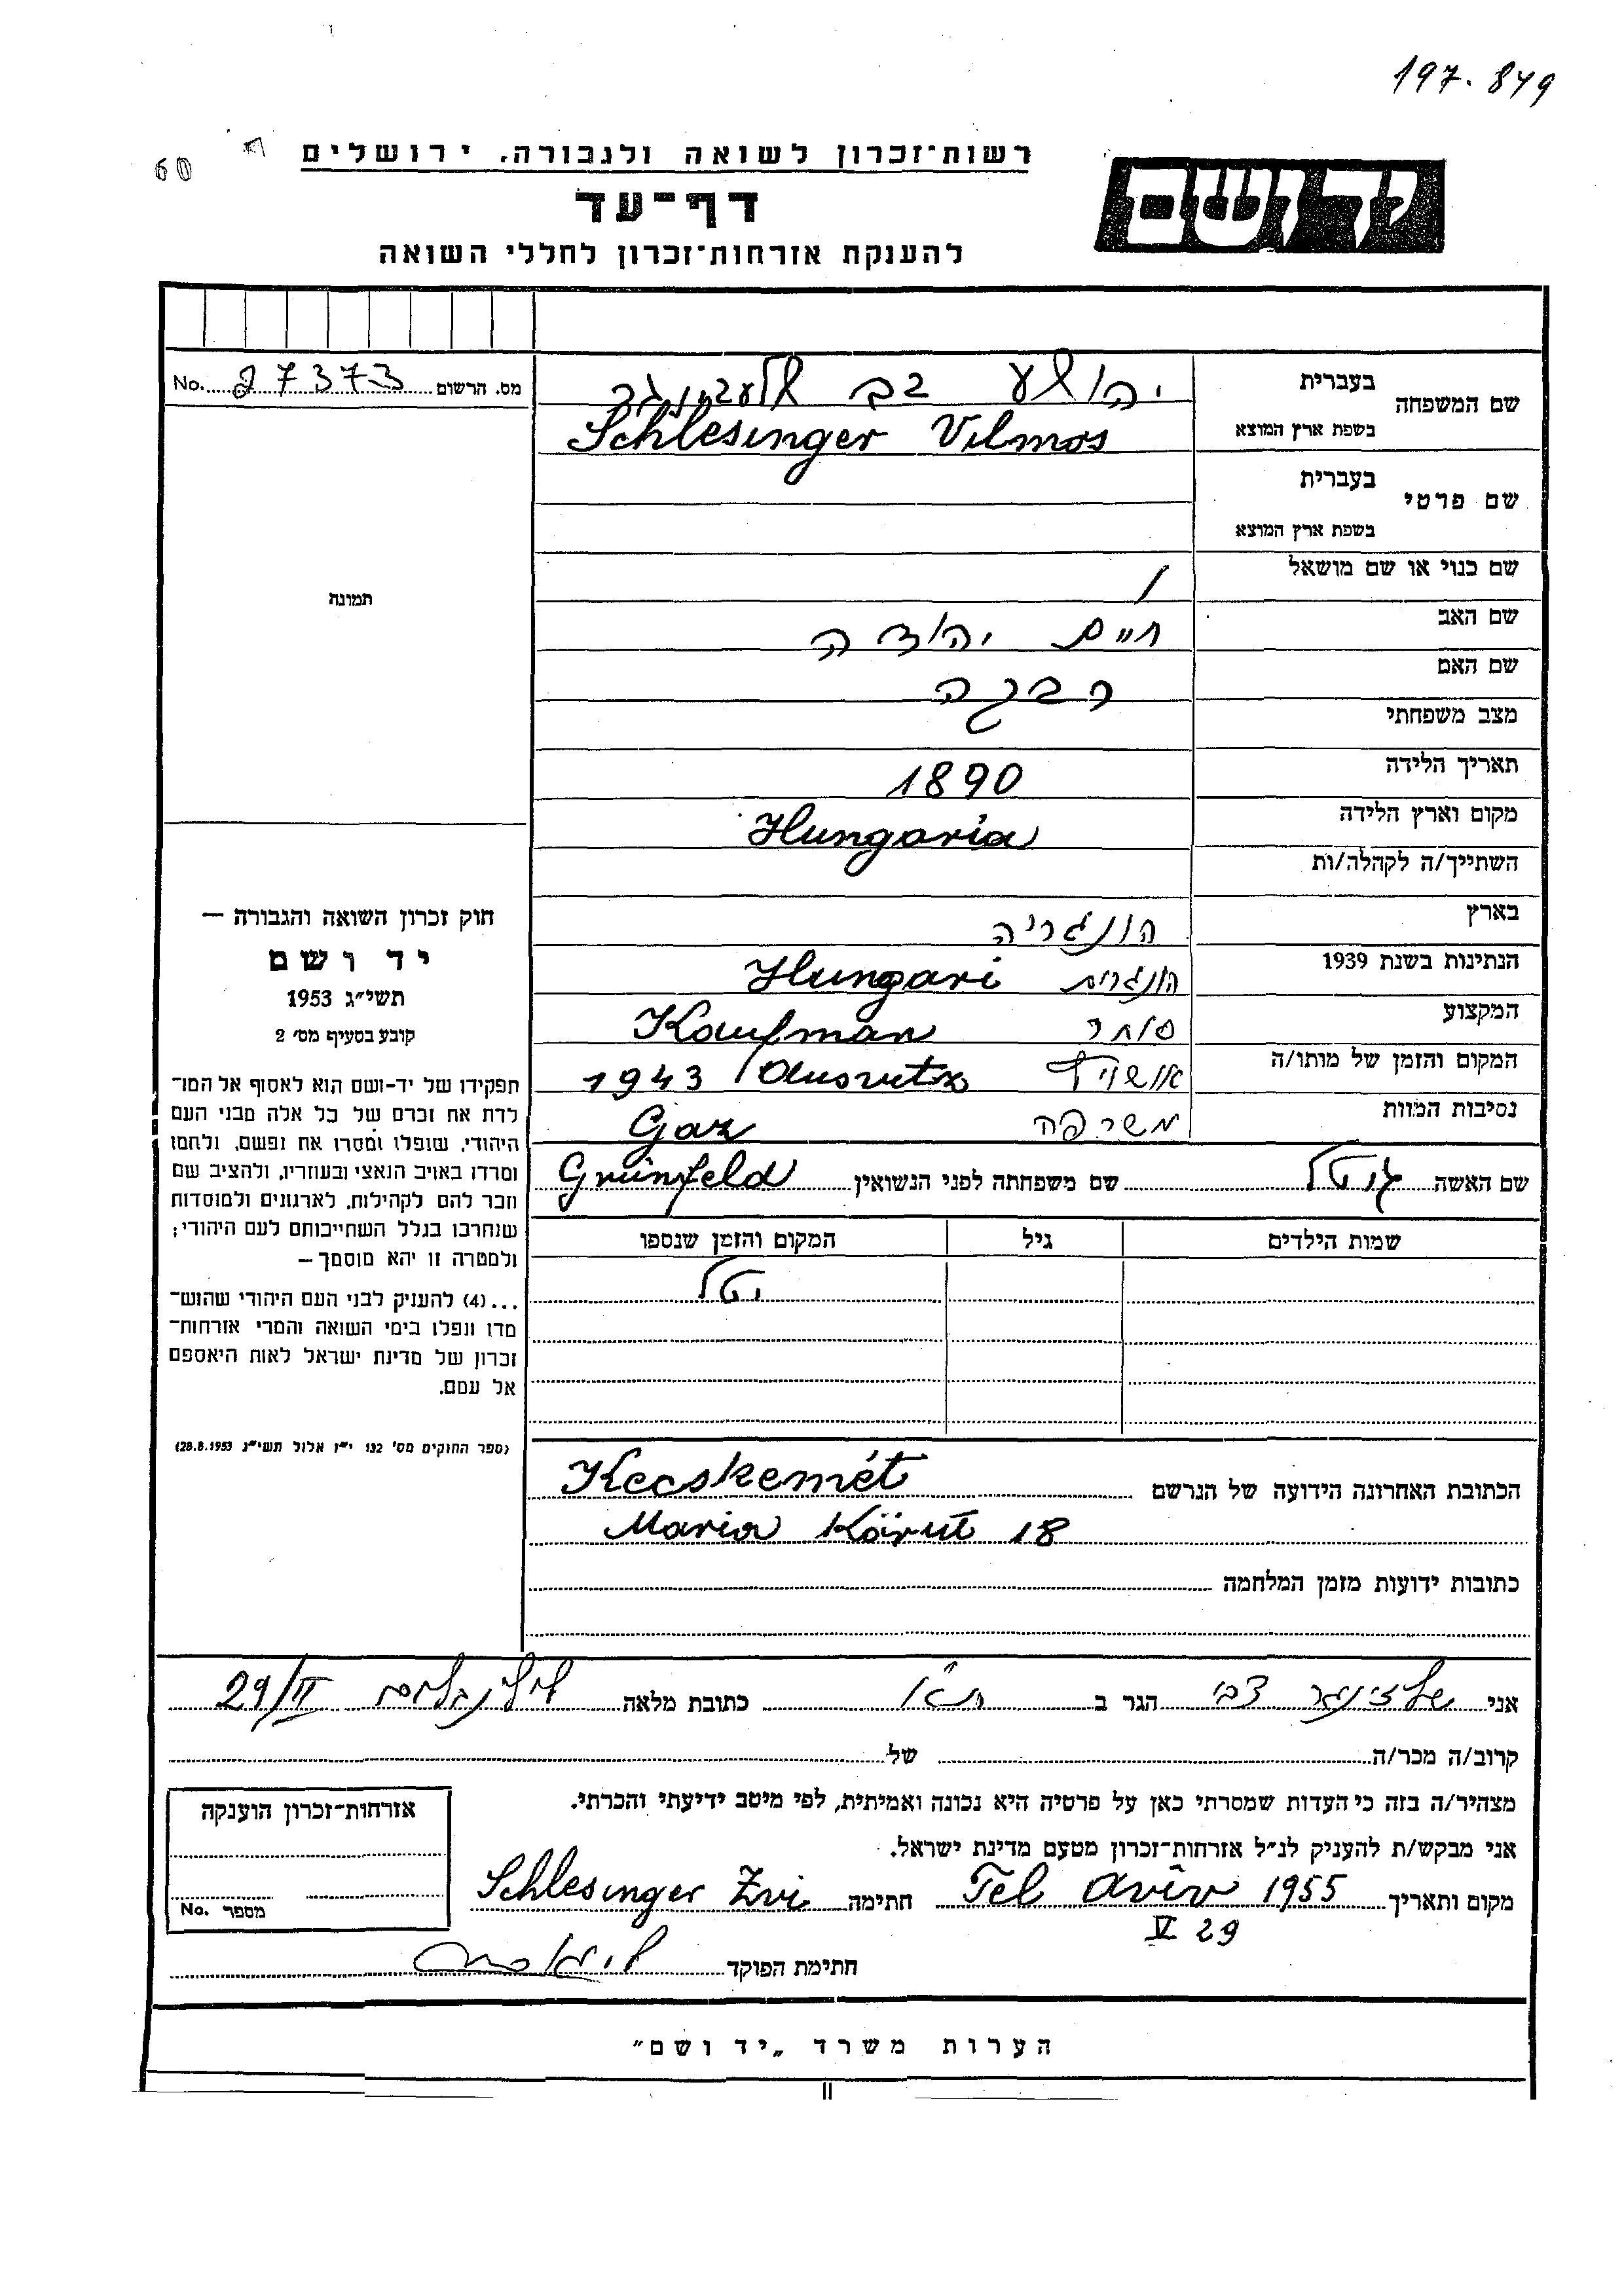 197.849
60
רשות־זכרון לשואה ולגבורה, ירושלים
דף־עד
להענקת אזרחות־זכרון לחללי השואה
יד ושם
מס. הרשום 27373 No.
שם המשפחה
בעברית יהושע צבי שלעזינגר
בשפת ארץ המוצא Schlesinger Vilmos
שם פרטי
בעברית
בשפת ארץ המוצא
שם כנוי או שם מושאל /
שם האב חיים יהודה
שם האם רבקה
מצב משפחתי
תאריך הלידה 1890
מקום וארץ הלידה Hungaria
השתייך/ה לקהלה/ות
בארץ הונגריה
הנתינות בשנת 1939 הונגרית Hungari
המקצוע סוחר Kaufman
המקום והזמן של מותו/ה אושויץ Ausvitz / 1943
נסיבות המוות משרפה Gaz
שם האשה גיטל שם משפחתה לפני הנשואין Grünfeld
שמות הילדים גיל המקום והזמן שנספו
הכתובת האחרונה הידועה של הנרשם Kecskemét
Maria Körút 18
כתובות ידועות מזמן המלחמה
תמונה
חוק זכרון השואה והגבורה —
יד ושם
תשי״ג 1953
קובע בסעיף מס׳ 2
תפקידו של יד־ושם הוא לאסוף אל המו־
לדת את זכרם של כל אלה מבני העם
היהודי, שנפלו ומסרו את נפשם, נלחמו
ומרדו באויב הנאצי ובעוזריו, ולהציב שם
וזכר להם לקהילות, לארגונים ולמוסדות
שנחרבו בגלל השתייכותם לעם היהודי;
ולמטרה זו יהא מוסמך —
...(4) להעניק לבני העם היהודי שהוש־
מדו ונפלו בימי השואה והמרי אזרחות־
זכרון של מדינת ישראל לאות היאספם
אל עמם.
(ספר החוקים מס׳ 132 י״ז אלול תשי״ג 28.8.1953)
אני שלזינגר צבי הגר ב ת״א כתובת מלאה 29/II
קרוב/ה מכר/ה של
מצהיר/ה בזה כי העדות שמסרתי כאן על פרטיה היא נכונה ואמיתית, לפי מיטב ידיעתי והכרתי.
אני מבקש/ת להעניק לנ״ל אזרחות־זכרון מטעם מדינת ישראל.
מקום ותאריך Tel Aviv 1955 חתימה Schlesinger Zvi
V 29
חתימת הפוקד
אזרחות־זכרון הוענקה
מספר No.
הערות משרד „יד ושם״